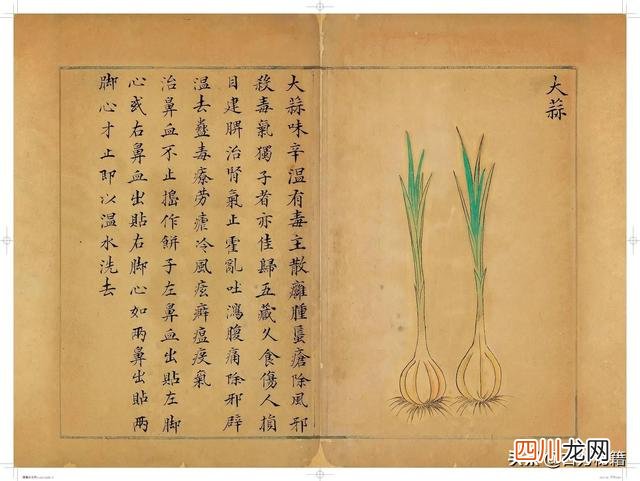 大蒜
大蒜味辛温有毒主散癰腫䘌瘡除風邪
殺毒氣獨子者亦佳歸五藏久食傷人損
目建脾治腎氣止霍亂吐瀉腹痛除邪辟
温去蠱毒療劳瘧冷風痃癖瘟疫氣
治鼻血不止搗作餅子左鼻血出貼左脚
心或右鼻血出貼右脚心如兩鼻出貼兩
脚心才止即以温水洗去
四川龙网